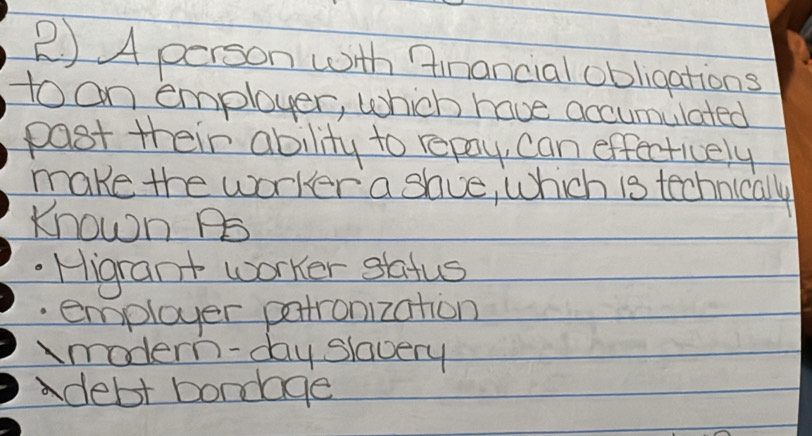 2.) A person with Financial obligations
to an employer, which have accumulated
past their ability to repay, can effectively
make the worker a slave, which is technically
Known As
• Migrant worker status
• employer patronization
\ modern-day slavery
\ debt bondage